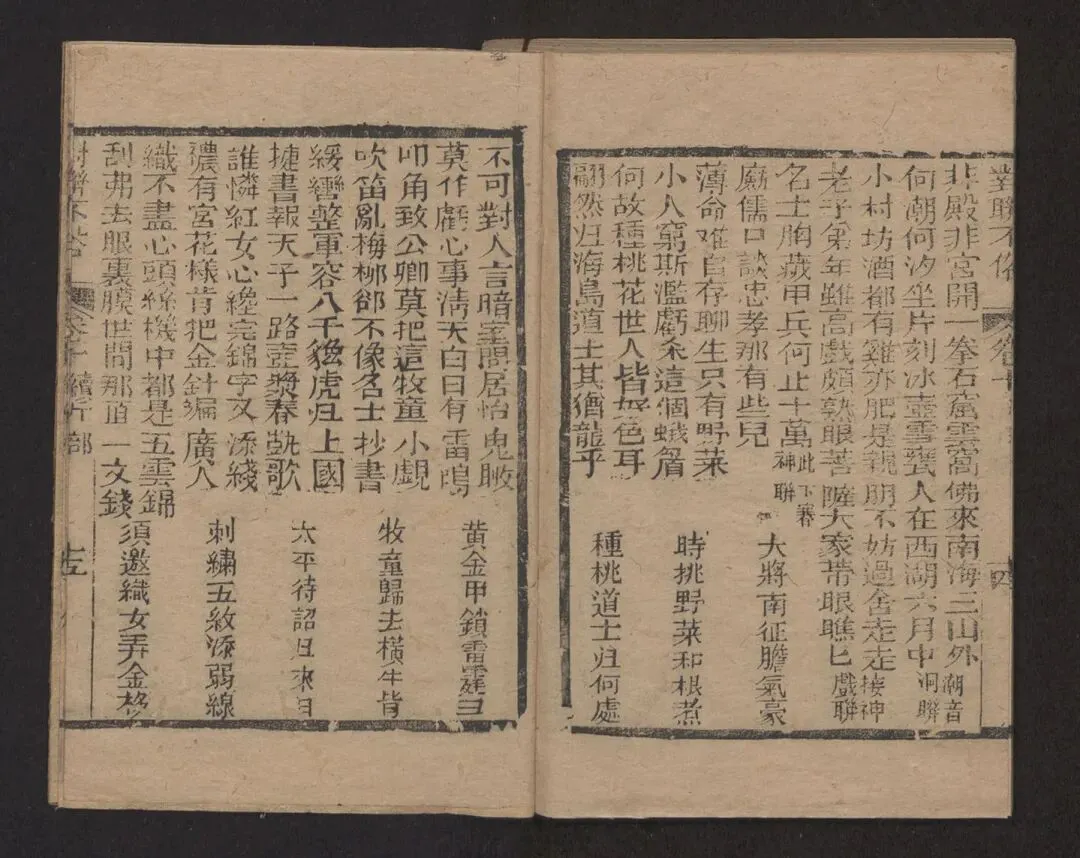 對聯不俗 卷十 十四
非殿非宮開一拳石窟雲窩佛來南海三山外 潮音
何潮何汐坐片刻冰壺雪甕人在西湖六月中 洞聯
小村坊酒都有雞亦肥是親朋不妨過舍走走 接神
老子弟年雖高戲頗熟眼菩薩大家帶眼瞧匕 戲聯
名士胸藏甲兵何止十萬 此下籤神聯 大將南征膽氣豪
廟儒口談忠孝那有些兒
薄命难自存聊生只有野菜 時挑野菜和根煮
小人窮斯濫虧杀這個蛾眉
何故種桃花世人皆好色耳 種桃道士归何處
翩然归海島道士其猶龍乎
不可對人言暗室問居怡鬼瞰 黄金甲鎖雷霆彐
莫作虧心事淸天白日有雷鳴
叩角致公卿莫把這牧童小覷 牧童歸去橫牛背
吹笛亂梅栁郤不像名士抄書
緩轡整軍容八千貔虎归上國 太平待詔归來日
捷書報天子一路壺漿春凱歌
誰憐紅女心纔完錦字又添綫 刺繡五紋添弱線
襛有宮花樣肯把金針遍廣人
織不盡心頭絲機中都是五雲錦 須邀織女弄金梭
刮弗去眼裏膜世間那值一文錢
對聯不俗 卷十續竹部 十五